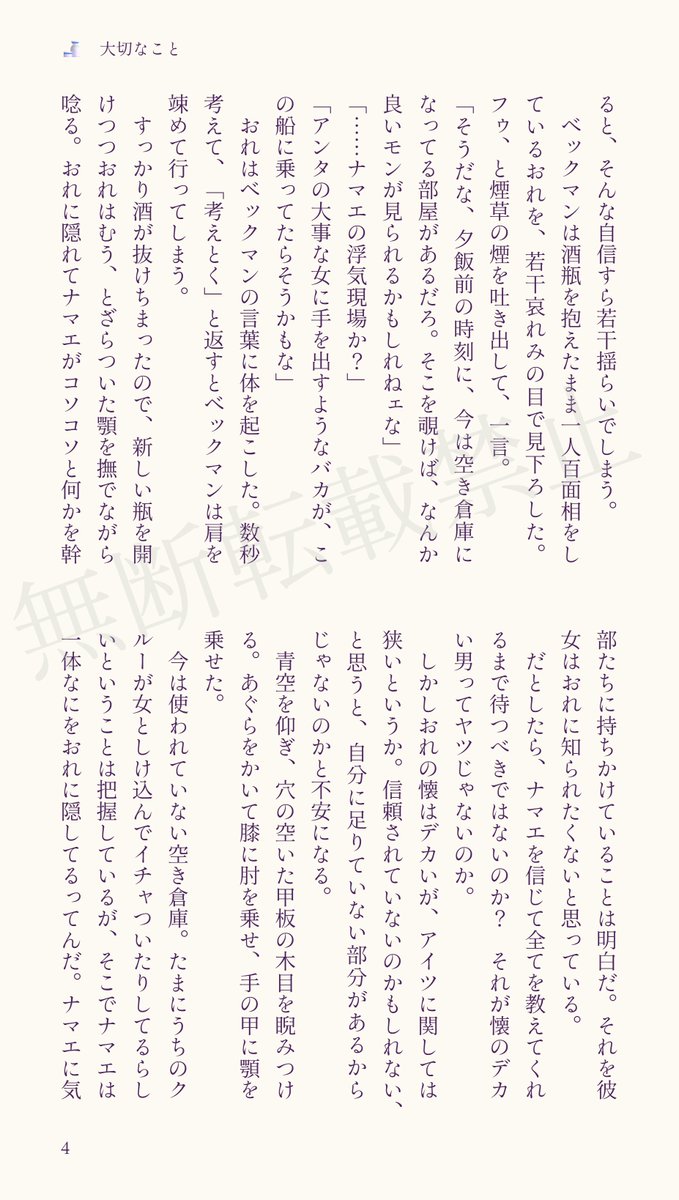 大切なこと
ると、そんな自信すら若干揺らいでしまう。
　ベックマンは酒瓶を抱えたまま一人百面相をし
ているおれを、若干哀れみの目で見下ろした。
フゥ、と煙草の煙を吐き出して、一言。
「そうだな、夕飯前の時刻に、今は空き倉庫に
なってる部屋があるだろ。そこを覗けば、なんか
良いモンが見られるかもしれねェな」
「……ナマエの浮気現場か？」
「アンタの大事な女に手を出すようなバカが、こ
の船に乗ってたらそうかもな」
　おれはベックマンの言葉に体を起こした。数秒
考えて、「考えとく」と返すとベックマンは肩を
竦めて行ってしまう。
　すっかり酒が抜けちまったので、新しい瓶を開
けつつおれはむう、とざらついた顎を撫でながら
唸る。おれに隠れてナマエがコソコソと何かを幹
部たちに持ちかけていることは明白だ。それを彼
女はおれに知られたくないと思っている。
　だとしたら、ナマエを信じて全てを教えてくれ
るまで待つべきではないのか？　それが懐のデカ
い男ってヤツじゃないのか。
　しかしおれの懐はデカいが、アイツに関しては
狭いというか。信頼されていないのかもしれない、
と思うと、自分に足りていない部分があるから
じゃないのかと不安になる。
　青空を仰ぎ、穴の空いた甲板の木目を睨みつけ
る。あぐらをかいて膝に肘を乗せ、手の甲に顎を
乗せた。
　今は使われていない空き倉庫。たまにうちのク
ルーが女としけ込んでイチャついたりしてるらし
いということは把握しているが、そこでナマエは
一体なにをおれに隠してるってんだ。ナマエに気
4
無断転載禁止